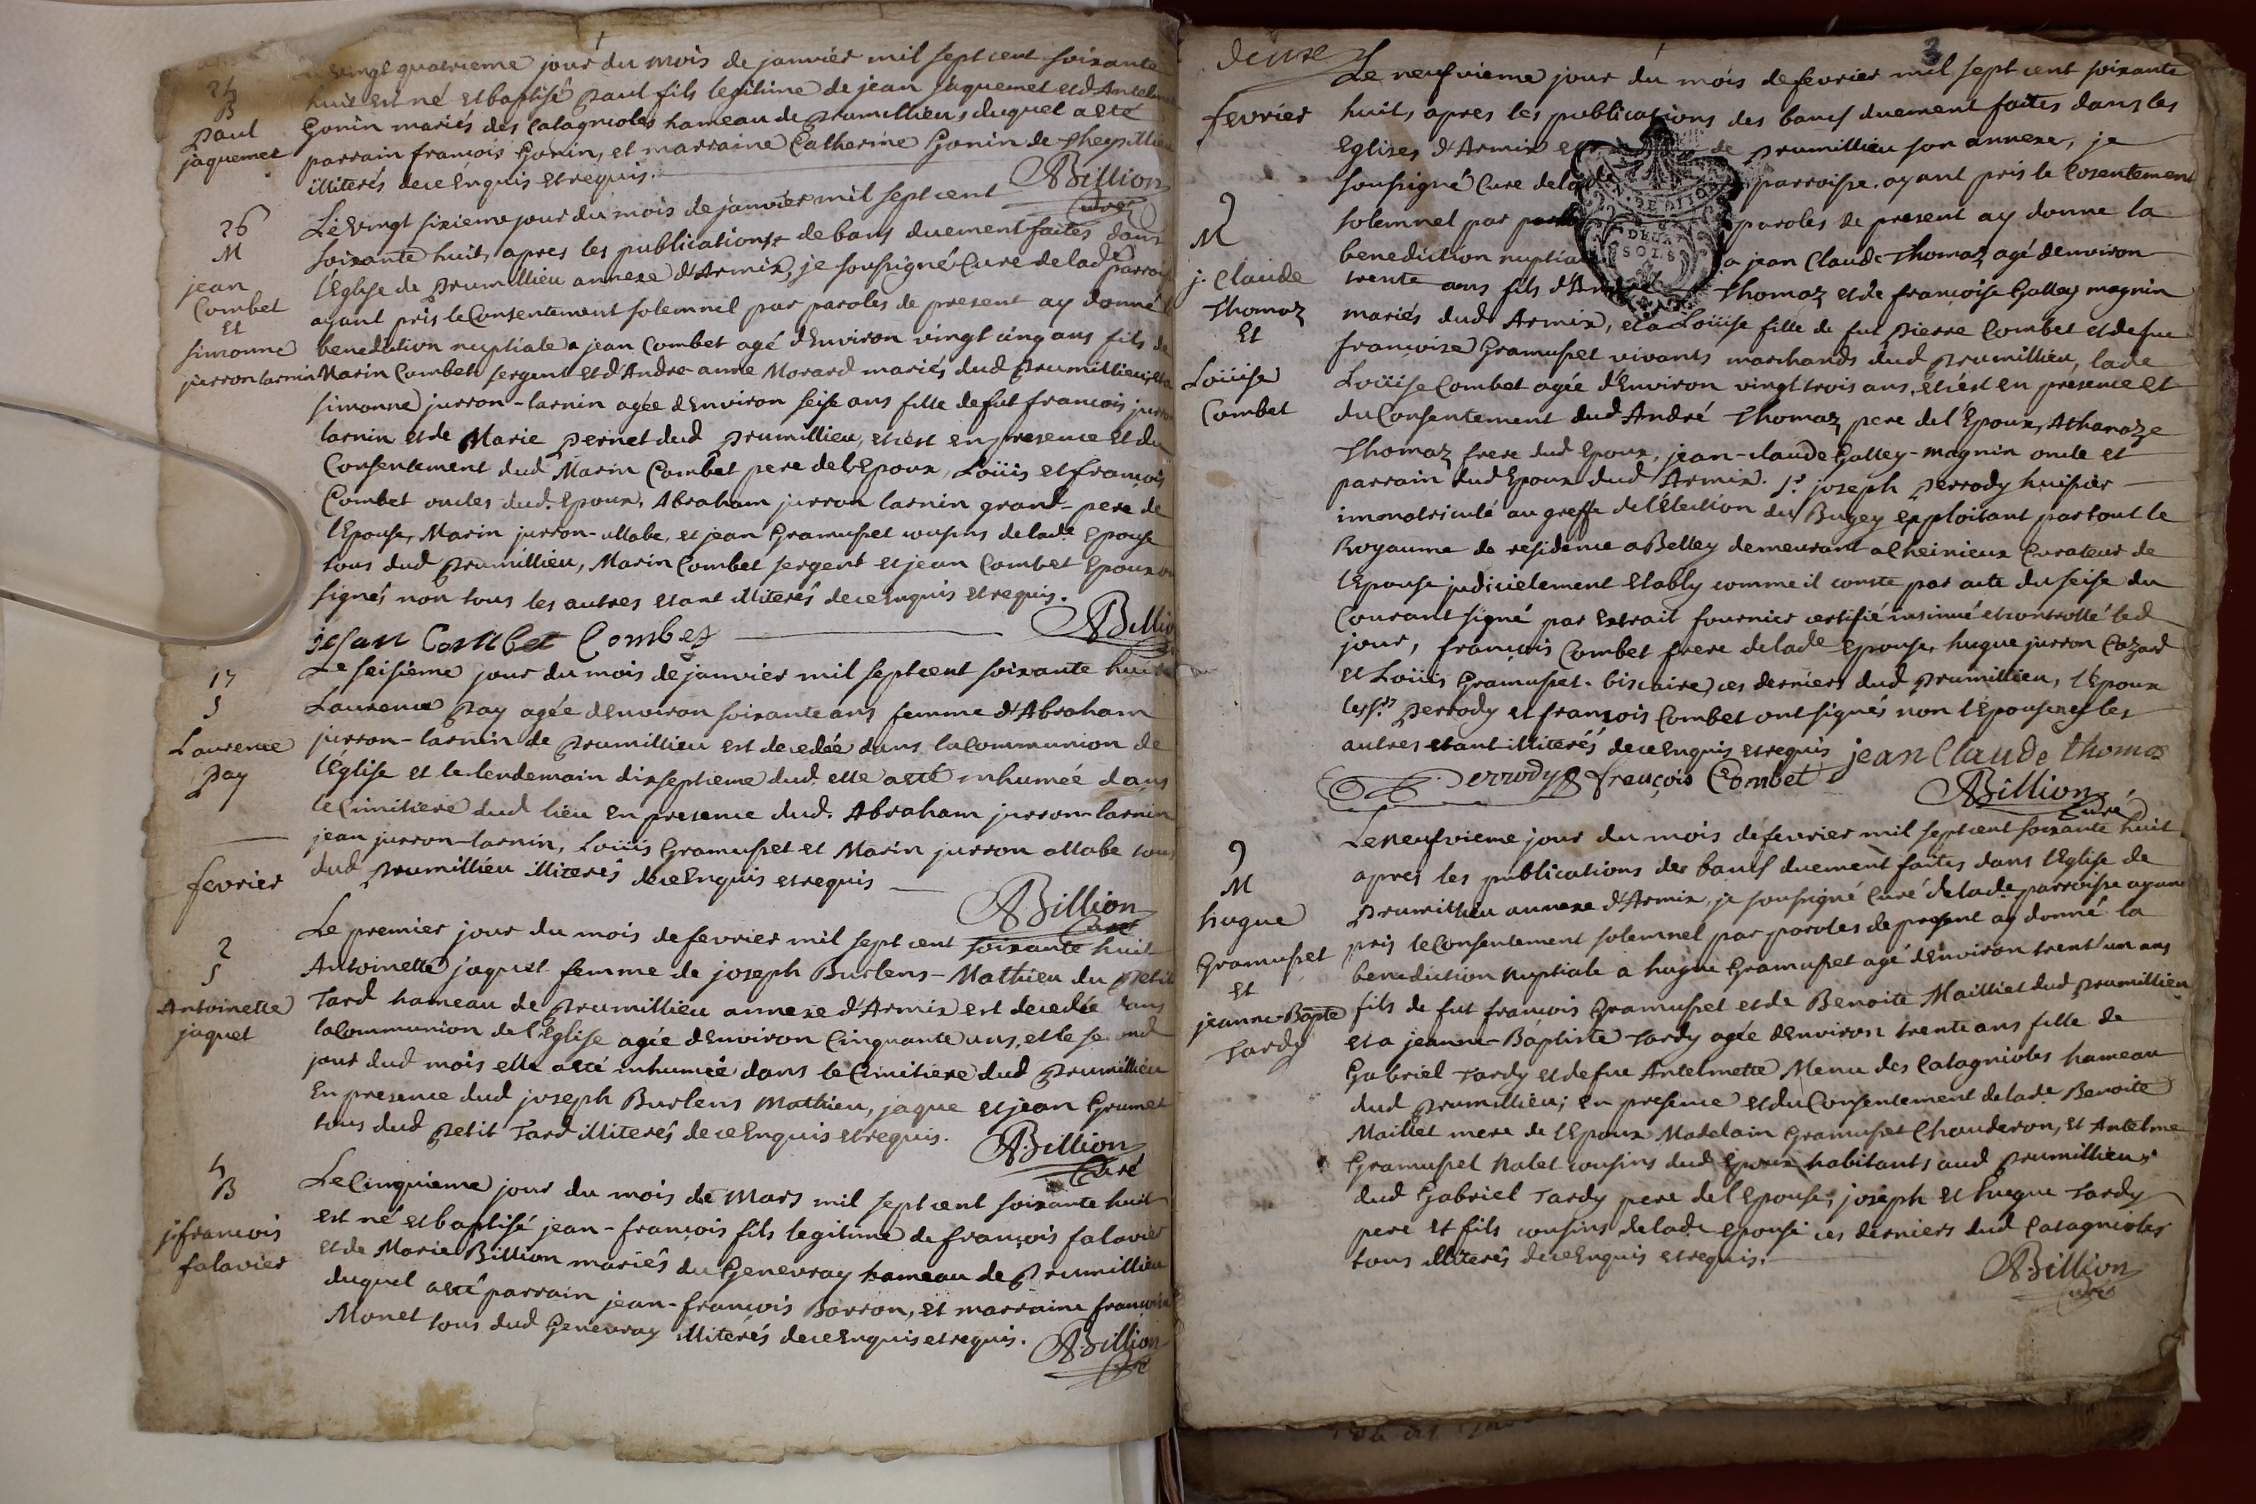 24
B
paul
jaquemet
vingt quatrieme jour du mois de janvier mil sept cent soixante
huit est né et baptisé paul fils legitime de jean jaquemet et d'Antelm
Gonin mariés des Catagnioles hameau de prumillieu, duquel a eté
parrain françois Gonin, et marraine Catherine Gonin de theyzillieu
illiterés de ce Enquis et requis.
ABillion
Curé
26
M
jean
Combet
et
simonne
jurron larnin
Le vingt sixieme jour du mois de janvier mil sept cent
soixante huit, apres les publications de bans duement faites dans
l'Eglise de prumillieu annexe d'Armix, je soussigné Curé de lade parroisse
ayant pris le Consentement solemnel par paroles de present ay donné l
benediction nuptiale a jean Combet agé d'Environ vingt cinq ans fils de
Marin Combet sergent et d'Andre-anne Morard mariés dud prumillieu, et a
simonne jurron-larnin agée d'Environ seise ans fille de fut francois jurron
larnin et de Marie pernet dud prumillieu, et c'est en presence et du
Consentement dud Marin Combet pere de l'Epoux, Loüis et françois
Combet oncles dud. Epoux, Abraham jurron larnin grand-pere de
l'Epouse, Marin jurron-allabe, et jean Gramusset cousins de lade Epouse
tous dud prumillieu, Marin Combet sergent et jean Combet Epoux on
signés non tous les autres etant illiterés de ce Enquis et requis.
jehan Combet Combet
ABillio
17
S
Laurence
pay
Le seisième jour du mois de janvier mil sept cent soixante huit
Laurence pay agée d'Environ soixante ans femme d'Abraham
jurron-larnin de prumillieu est decedée dans la Communion de
l'Eglise et le lendemain dixseptieme dud. elle a eté inhumée dans
le Cimitiere dud lieu en presence dud. Abraham jurron-larnin
jean jurron-larnin, Loüis Gramusset et Marin jurron allabe tous
dud prumillieu illiterés de ce Enquis et requis
ABillion
Curé
fevrier
2
S
Antoinette
jaquet
Le premier jour du mois de fevrier mil sept cent soixante huit
Antoinette jaquet femme de joseph Burlens-Mathieu du petit
Tard hameau de prumillieu annexe d'Armix est decedée dans
la Communion de l'Eglise agée d'Environ Cinquante ans, et le second
jour dud mois elle a eté inhumée dans le Cimitiere dud prumillieu
En presence dud joseph Burlens Mathieu, jaque et jean Grumet
tous dud petit Tard illiterés de ce Enquis et requis.
ABillion
Curé
5
B
j francois
falavier
Le Cinquieme jour du mois de Mars mil sept cent soixante huit
est né et baptisé jean-françois fils legitime de françois falavier
et de Marie Billion mariés du Genevray hameau de prumillieu
duquel a eté parrain jean-françois Borron, et marraine françoise
Monet tous dud Genevray illiterés de ce Enquis et requis.
ABillion
Curé
deuxe
3
fevrier
9
M
j. Claude
Thomaz
Et
Loüise
Combet
Le neufvieme jour du mois de fevrier mil sept cent soixante
huit, apres les publications des bans duement faites dans les
Eglises d'Armix et de prumillieu son annexe, je
soussigné Curé de lade parroisse, ayant pris le Cosentement
solemnel par paroles de present ay donne la
benediction nuptiale a jean Claude Thomaz agé d'environ
trente ans fils d'André Thomaz et de françoise Galley magnin
mariés dud Armix, et a Loüise fille de fut pierre Combet et de fue
françoise Gramusset vivants marchands dud prumillieu, lade
Loüise Combet agée d'Environ vingt trois ans, et c'est en presence et
du Consentement dud André Thomaz pere de l'Epoux, Athanaze
Thomaz frere dud Epoux, jean-claude Galley-magnin oncle et
parrain dud Epoux dud Armix. Sr joseph perrody huissier
immatriculé au greffe de l'Election du Bugey exploitant par tout le
Royaume de residence a Belley demeurant a Cheinieux Curateur de
l'Epouse judicielement Etably comme il conste par acte du seise du
Courant signé par Extrait fournier certifié insinué et controllé led
jour, françois Combet frere de lade Epouse, hugue jurron Cozard
et Loüis Gramusset-biscaire ces derniers dud prumillieu, l'Epoux
les Srs perrody et françois Combet ont signés non l'Epouse ny les
autres etant illiterés de ce Enquis et requis jean Claude thomas
perrody françois Combet
ABillion
Curé
DEUX
SOLS
9
M
hugue
Gramusset
et
jeanne-Bapte
Tardy
Le neufvieme jour du mois de fevrier mil sept cent soixante huit
apres les publications des bans duement faites dans l'Eglise de
prumillieu annexe d'Armix, je soussigné Curé de lade parroisse ayant
pris le Consentement solemnel par paroles de present ay donné la
benediction nuptiale a hugue Gramusset agé d'Environ trent'un ans
fils de fut françois Gramusset et de Benoite Mailliet dud prumillieu
et a jeanne-Baptiste Tardy agée d'Environ trente ans fille de
Gabriel Tardy et de fue Antelmette Menu des Catagnioles hameau
dud prumillieu; en presence et du Consentement de lade Benoite
Mailliet mere de l'Epoux Madelain Gramusset Chouderon, et Antelme
Gramusset Nalet cousins dud Epoux habitants aud prumillieu,
dud Gabriel Tardy pere de l'Epouse, joseph et hugue Tardy
pere et fils cousins de lade Epouse ces derniers dud Catagnioles
tous illiterés de ce Enquis et requis.
ABillion
Curé